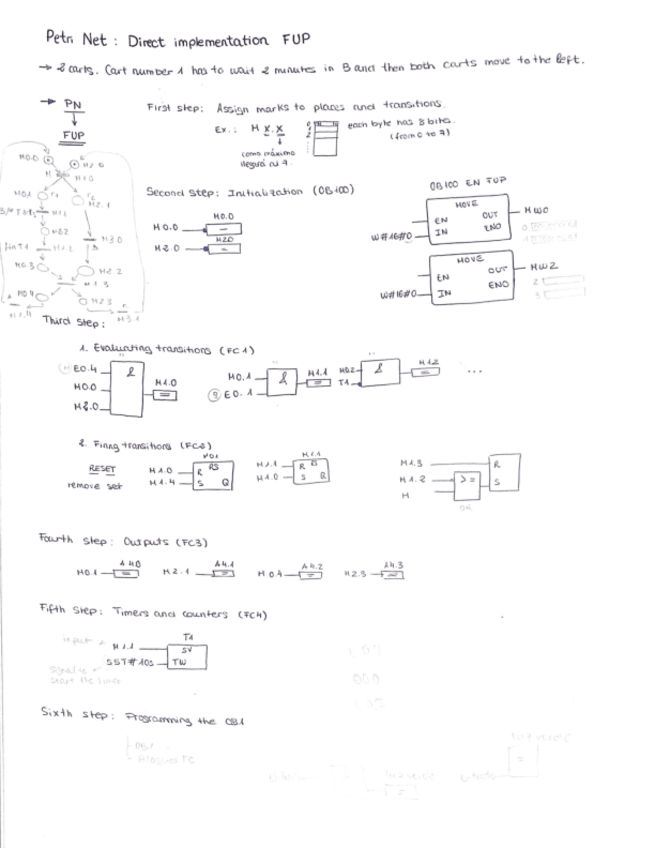 Petri Net: Direct implementation FUP
→ 2 carts. Cart number 1 has to wait 2 minutes in B and then both carts move to the left.
→ PN
FUP
First step: Assign marks to places and transitions.
Ex.: M x.x
each byte has 8 bits.
(from 0 to 7)
como máximo
llegará al 7.
M0.0
M2.0
M1.0
M0.1
M2.1
M3.0
M0.3
M2.2
M1.3
M0.4
M2.3
M1.4
M3.1
Second step: Initialization (OB100)
M0.0
M0.0
M2.0
M2.0
OB100 EN FUP
MOVE
EN
OUT
MW0
W#16#0
IN
ENO
MOVE
EN
OUT
MW2
W#16#0
IN
ENO
Third step:
1. Evaluating transitions (FC1)
E0.4
&
M0.0
M1.0
=
M2.0
M0.1
&
M1.1
=
E0.1
M0.2
&
M1.2
=
T1
...
2. Firing transitions (FC2)
RESET
remove set
M0.1
M1.0
R
RS
M1.4
S
Q
M1.1
R
M1.0
S
Q
M1.3
R
M1.2
>=
S
M
OR
Fourth step: Outputs (FC3)
M0.1
=
M2.1
A4.1
=
M0.4
A4.2
=
M2.3
A4.3
=
Fifth step: Timers and counters (FC4)
input
M1.1
T1
SV
S5T#10s
TW
start the timer
Sixth step: Programming the OB1
OB1